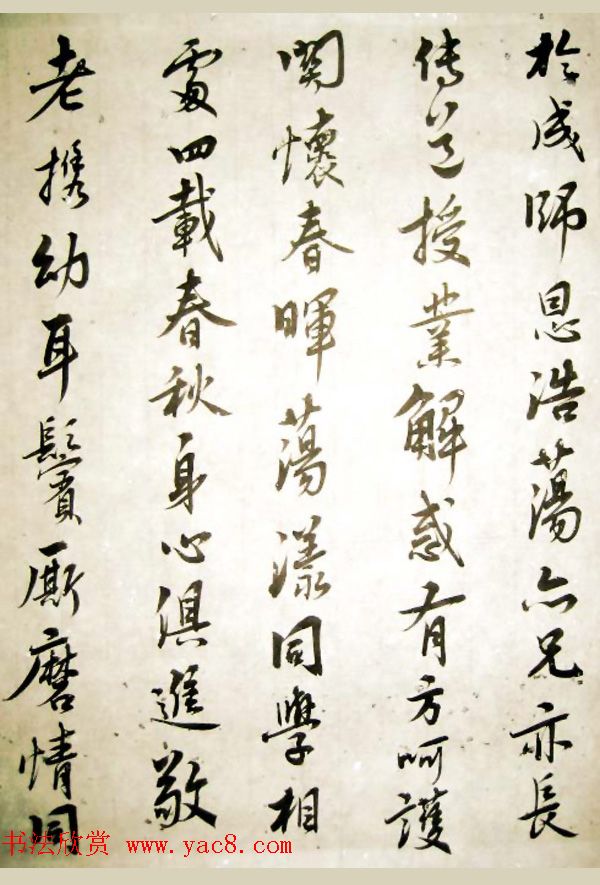 於成師恩浩蕩亦兄亦長
傳道授業解惑有方呵護
關懷春暉蕩漾同學相
處四載春秋身心俱進敬
老攜幼耳鬢廝磨情同
书法欣赏 www.yac8.com